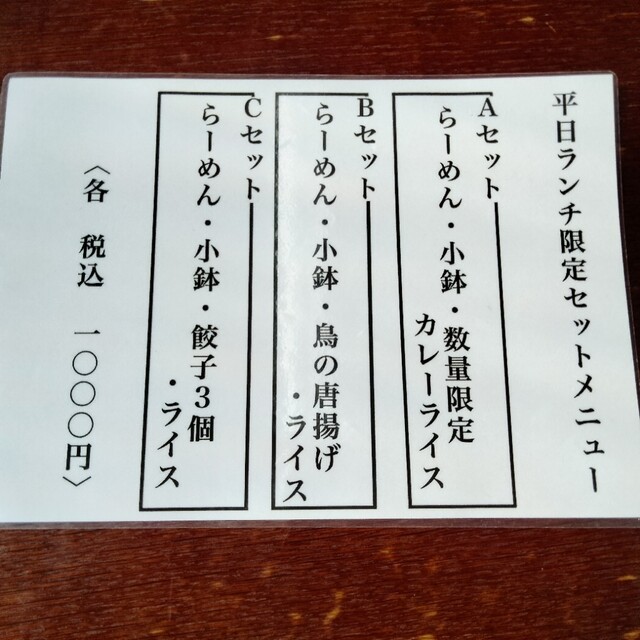 平日ランチ限定セットメニュー
Aセット
らーめん・小鉢・数量限定
カレーライス
Bセット
らーめん・小鉢・鳥の唐揚げ
・ライス
Cセット
らーめん・小鉢・餃子3個
・ライス
〈各 税込 一〇〇〇円〉